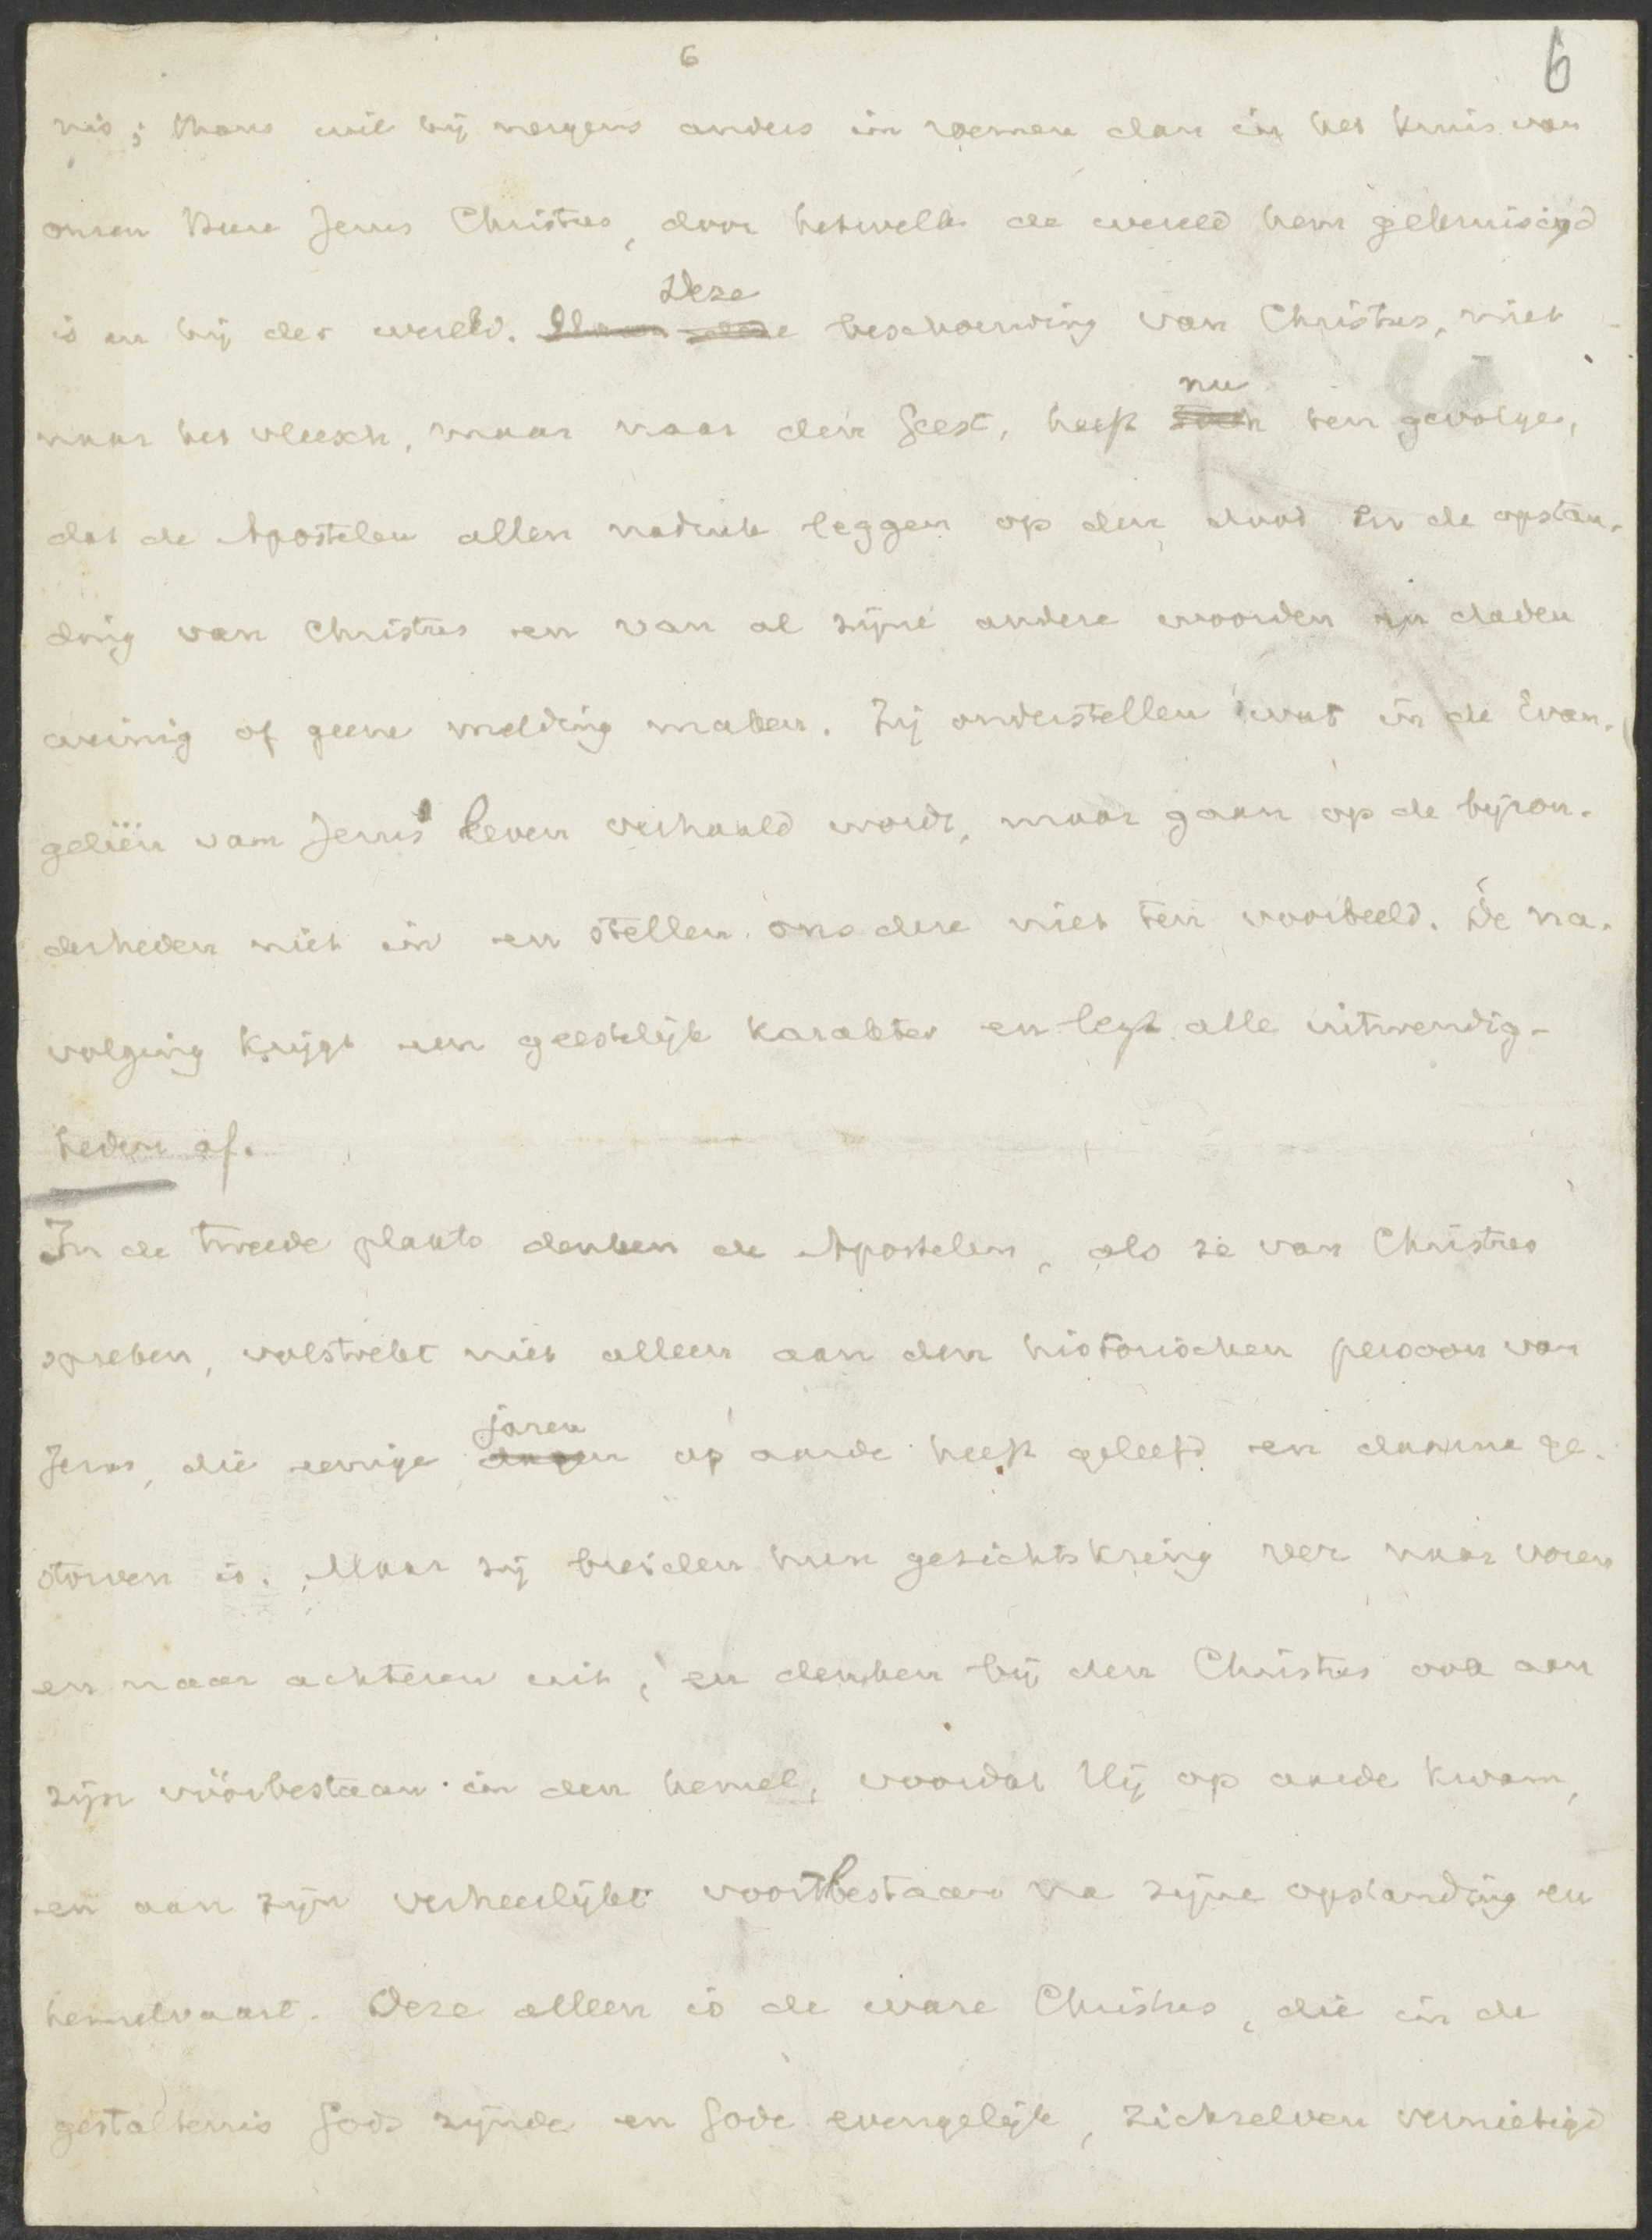 6
6
nis; thans wil hij nergens anders in roemen dan in het kruis van
onzen Heere Jezus Christus, door hetwelk de wereld hem gekruisigd
Deze
is en hij der wereld. beschouwing van Christus, niet
nu
naar het vleesch, maar naar den Geest, heeft ten gevolge,
dat de Apostelen allen nadruk leggen op den dood en de opstan-
ding van Christus en van al zijne andere woorden en daden
weinig of geene melding maken. Zij onderstellen wat in de Evan-
geliën van Jezus' leven verhaald wordt, maar gaan op de bijzon-
derheden niet in en stellen ons deze niet ten voorbeeld. De na-
volging krijgt een geestelijk karakter en legt alle uitwendig-
heden af.
In de tweede plaats denken de Apostelen, als ze van Christus
spreken, volstrekt niet alleen aan den historischen persoon van
jaren
Jezus, die eenige dagen op aarde heeft geleefd en daarna ge-
storven is. Maar zij breiden hun gezichtskring ver naar voren
en naar achteren uit, en denken bij den Christus ook aan
zijn vóórbestaan in den hemel, voordat Hij op aarde kwam,
en aan zijn verheerlijkt voortbestaan na zijne opstanding en
hemelvaart. Deze alleen is de ware Christus, die in de
gestaltenis Gods zijnde en Gode evengelijk, zichzelven vernietigd